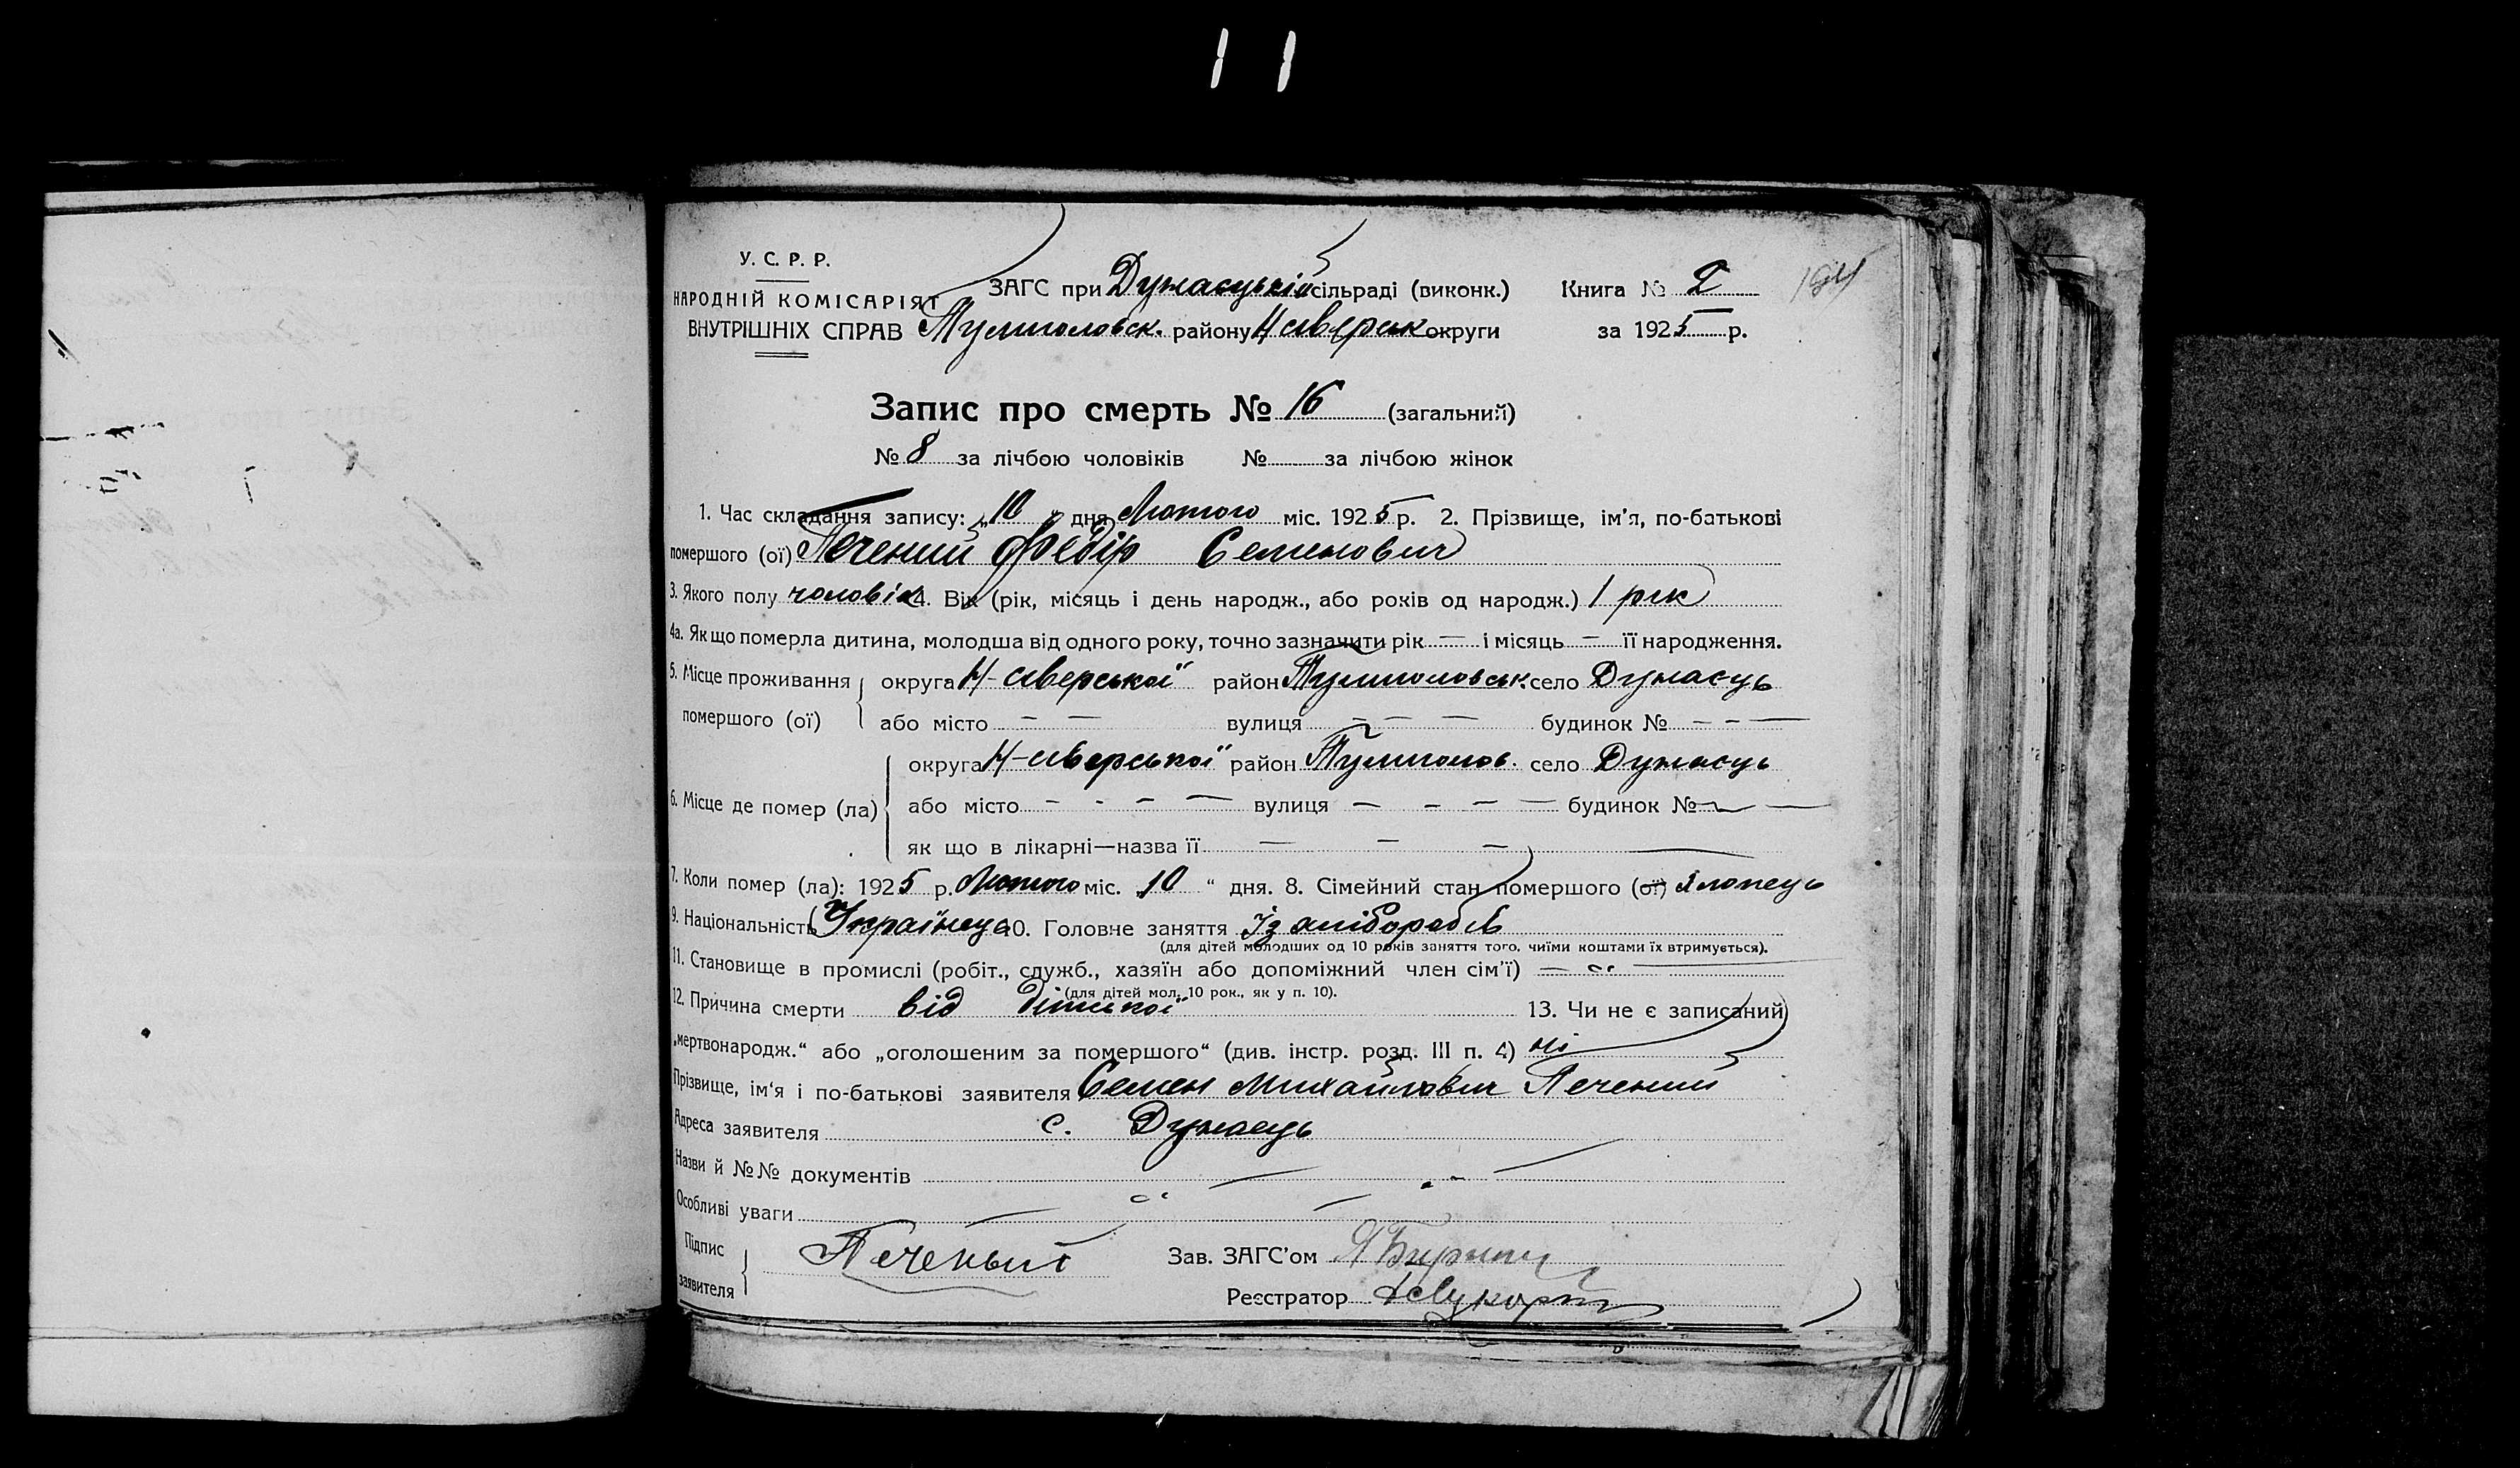 11
У. С. Р. Р.
НАРОДНІЙ КОМІСАРІЯТ
ВНУТРІШНІХ СПРАВ
ЗАГС при Дунаєцькій сільраді (виконк.) Книга №
Тулиголовск. району Н сіверськ округи за 1925 р.
Запис про смерть № 16 (загальний)
№ 8 за лічбою чоловіків № за лічбою жінок
1. Час складання запису: „10" дня Лютого міс. 1925 р. 2. Прізвище, ім'я, по-батькові
помершого (ої) Печений Федір Семенович
3. Якого полу чоловік 4. Вік (рік, місяць і день народж., або років од народж.) 1 рік
4а. Як що померла дитина, молодша від одного року, точно зазначити рік — і місяць — її народження.
5. Місце проживання помершого (ої) округа Н-сіверської район Тулиголовськ. село Дунаєць
або місто – — вулиця – – — будинок № – – —
6. Місце де помер (ла) округа Н-сіверської район Тулиголов. село Дунаєць
або місто – - – — вулиця – – – — будинок № —
як що в лікарні—назва її — – –
7. Коли помер (ла): 1925 р. Лютого міс. „10" дня. 8. Сімейний стан помершого (ої) хлопець
9. Національність Українець 10. Головне заняття Із хліборобів
(для дітей молодших од 10 років заняття того, чиїми коштами їх втримується).
11. Становище в промислі (робіт., служб., хазяїн або допоміжний член сім'ї) —
(для дітей мол. 10 рок., як у п. 10).
12. Причина смерти від 13. Чи не є записаний
„мертвонародж." або „оголошеним за помершого" (див. інстр. розд. III п. 4) ні
Прізвище, ім'я і по-батькові заявителя Семен Михайлович Печений
Адреса заявителя с. Дунаєць
Назви й №№ документів
Особливі уваги
Підпис заявителя Печеный Зав. ЗАГС'ом
Реєстратор